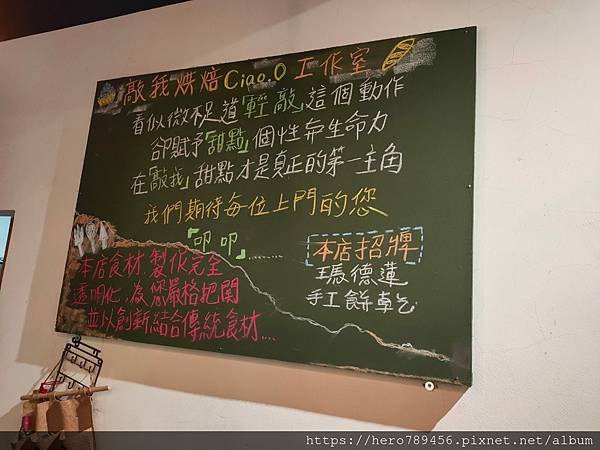 敲我烘焙Ciao.O工作室
看似微不足道「輕敲」這個動作
卻賦予「甜點」個性與生命力
在「敲我」甜點才是真正的第一主角
我們期待每位上門的您
「叩叩」..........
本店招牌
瑪德蓮
手工餅乾
本店食材.製作完全
透明化，為您嚴格把關
並以創新結合傳統食材....
https://hero789456.pixnet.net/album